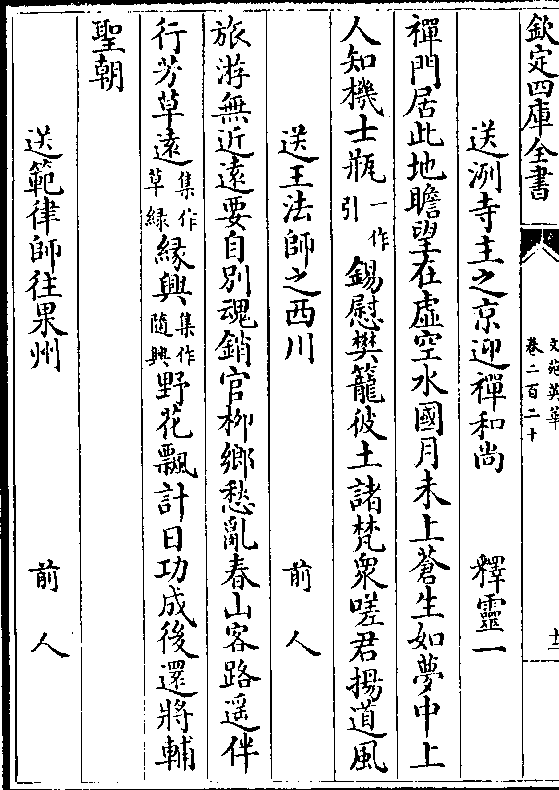 欽定四庫全書
文苑英華
卷二百二十
十二
送洌寺主之京迎禪和尚 釋靈一
禪門居此地瞻望在虛空水國月未上蒼生如夢中上
人知機士瓶一作引錫慰樊籠彼土諸梵衆嗟君揚道風
送王法師之西川 前人
旅游無近遠要自别魂銷官栁鄉愁亂春山客路遥伴
行芳草遠集作草緑緣興集作隨興野花飄計日功成後還將輔
聖朝
送範律師往果州 前人